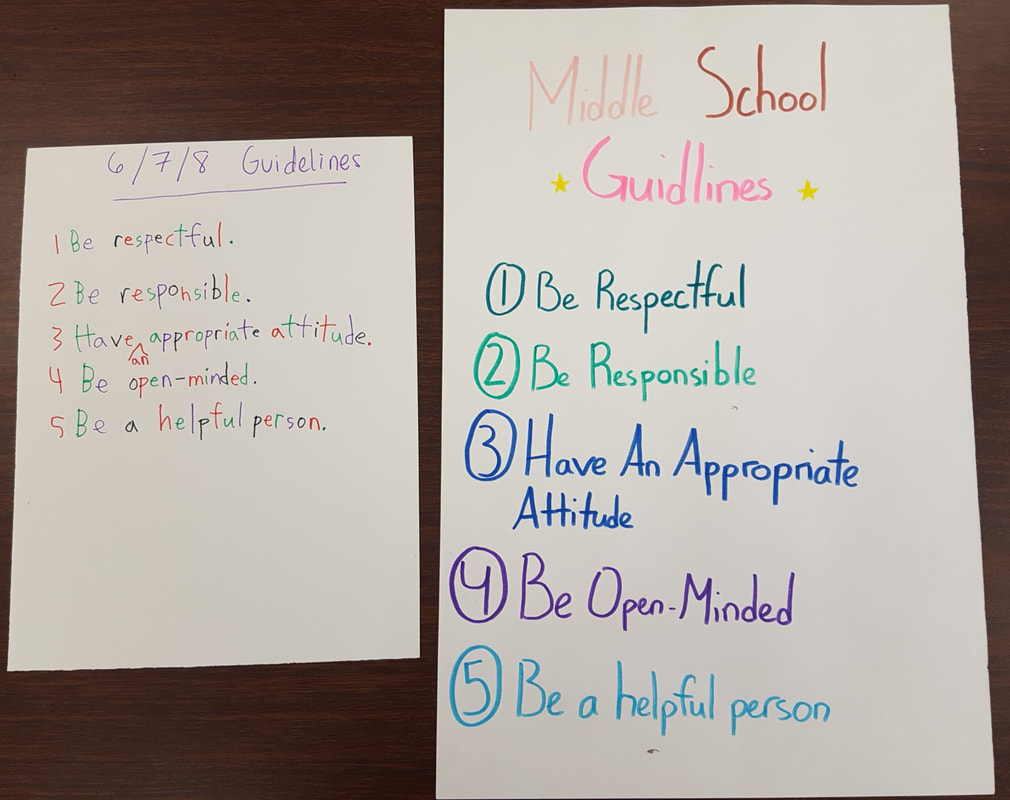 6/7/8 Guidelines
1 Be respectful.
2 Be responsible.
3 Have an appropriate attitude.
4 Be open-minded.
5 Be a helpful person.
Middle School
Guidlines
1 Be Respectful
2 Be Responsible
3 Have An Appropriate
Attitude
4 Be Open-Minded
5 Be a helpful person